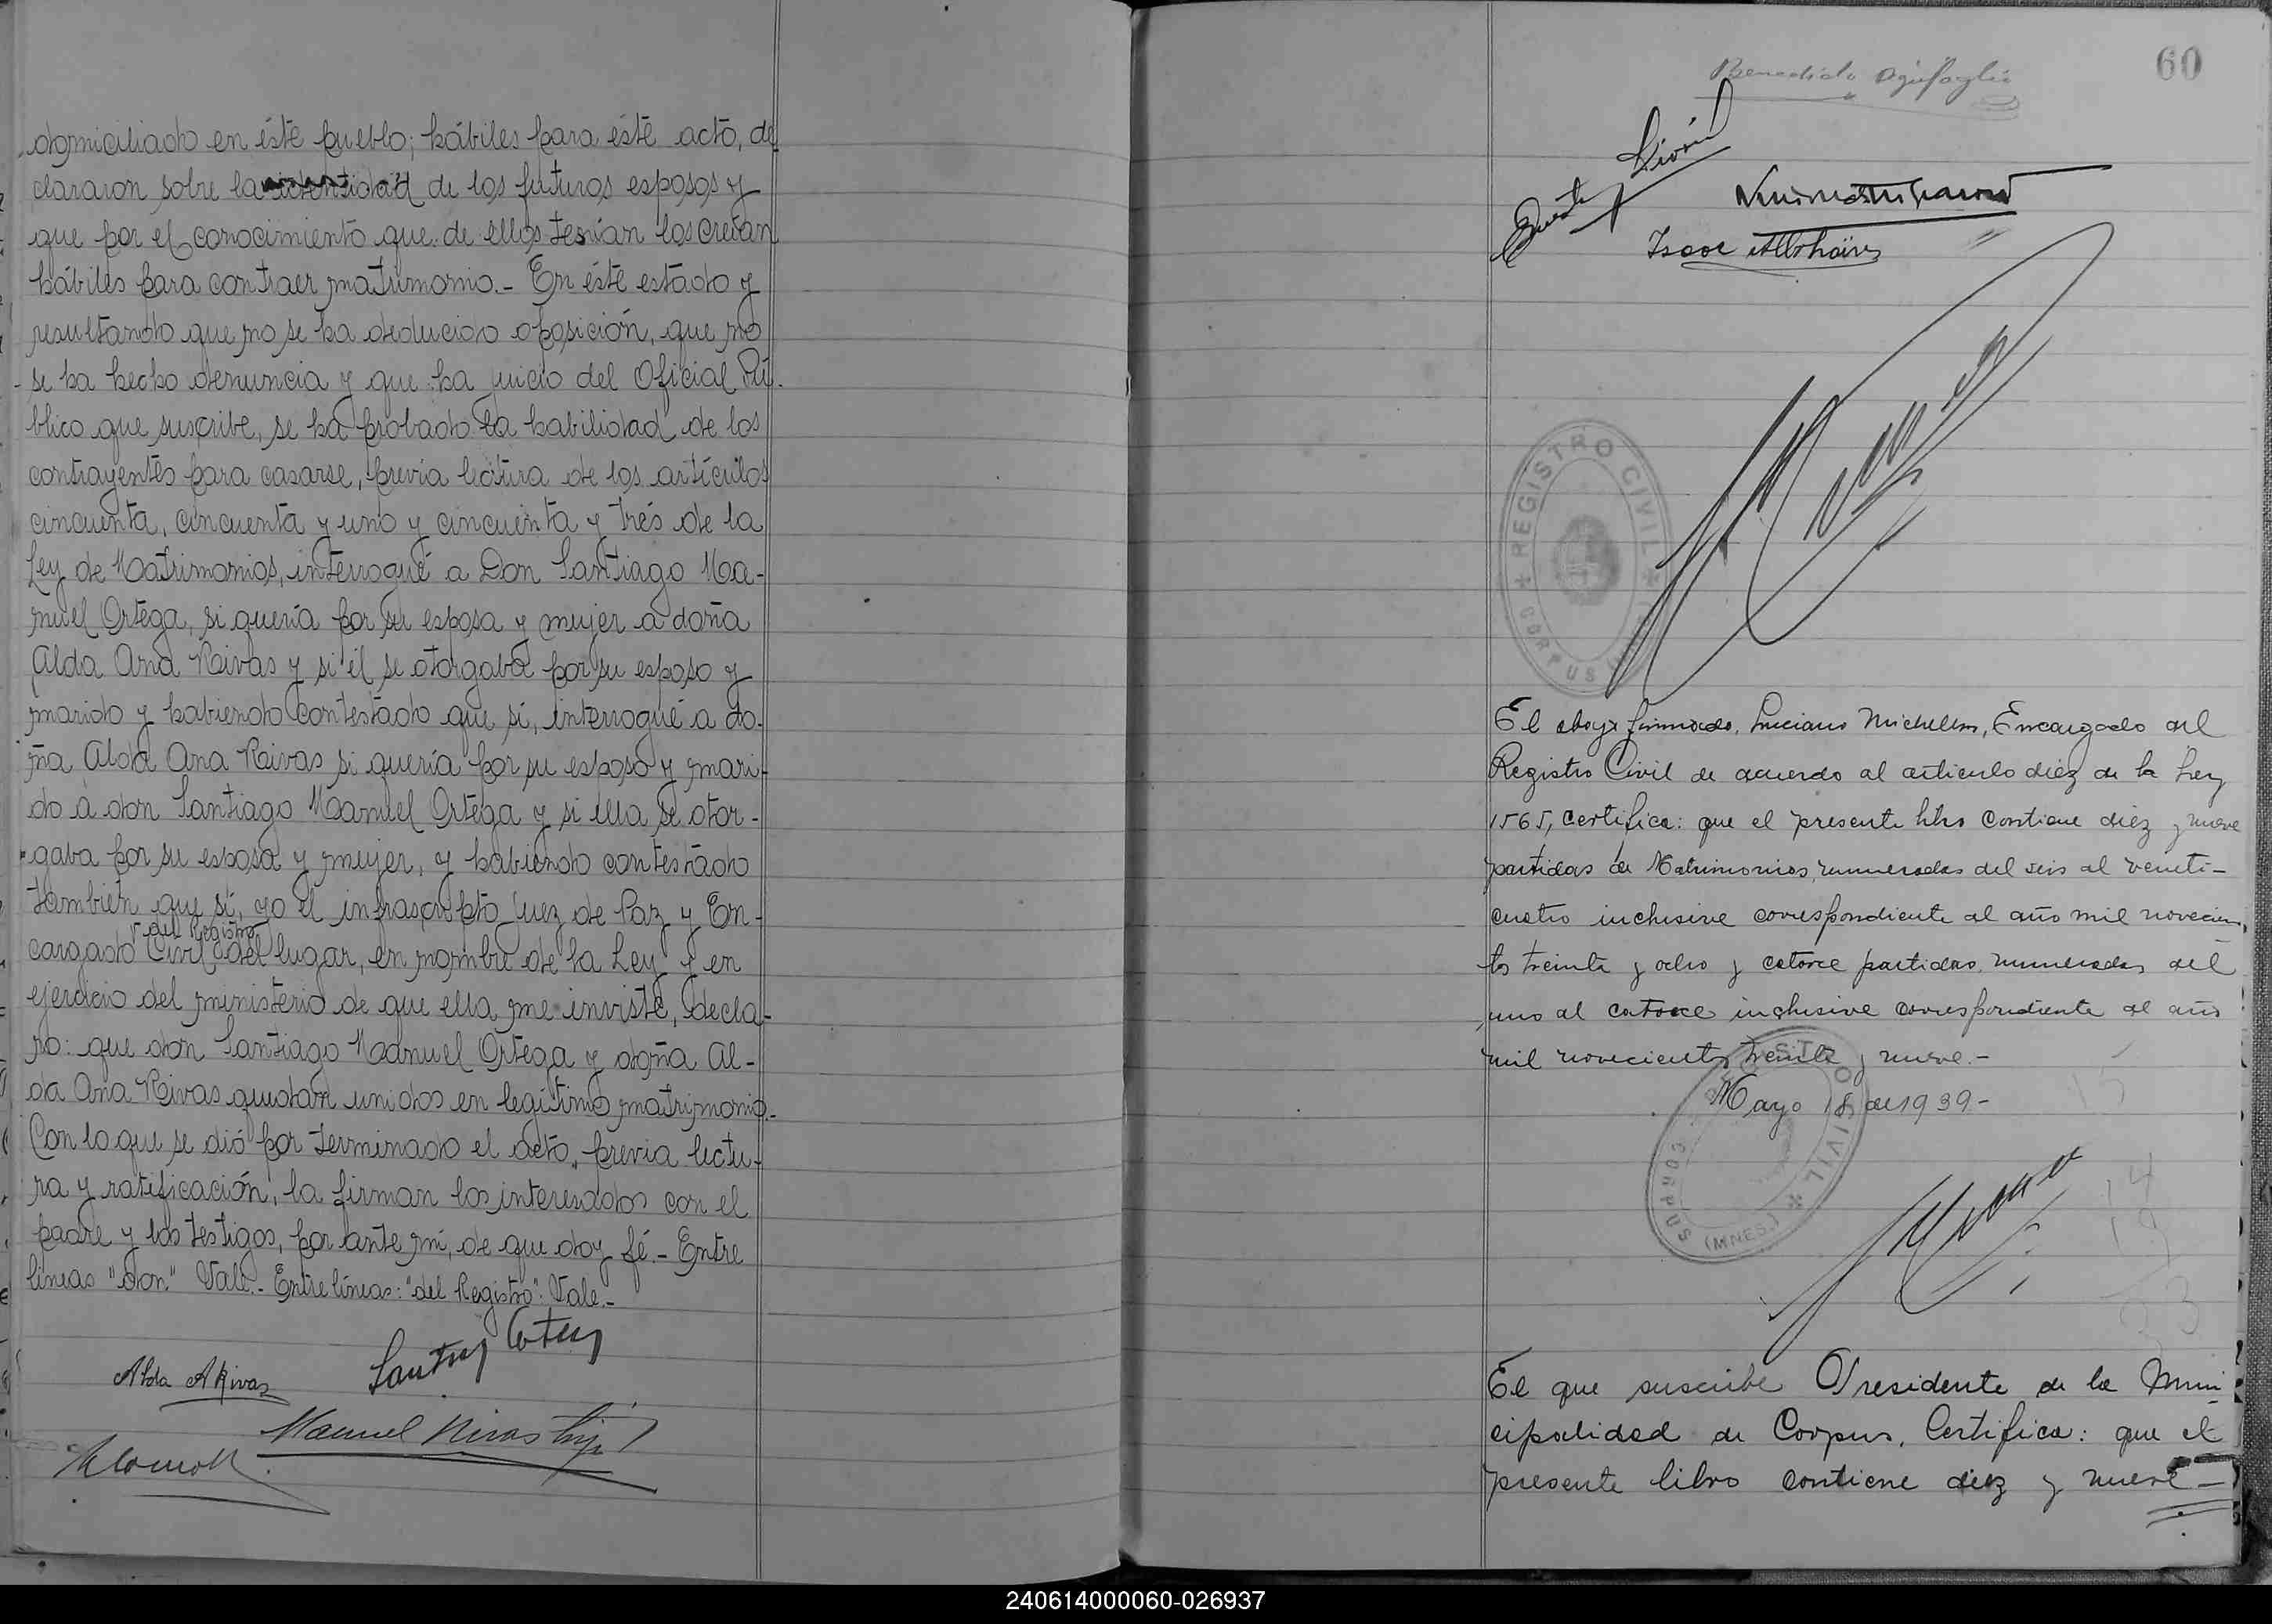 domiciliado en éste pueblo; hábiles para éste acto, de
clararon sobre la identidad de los futuros esposos y
que por el conocimiento que de ellos tenían los creían
hábiles para contraer matrimonio.- En éste estado y
resultando que no se ha deducido oposición, que no
se ha hecho denuncia y que ha juicio del Oficial Pú-
blico que suscribe, se ha probado la habilidad de los
contrayentes para casarse, previa lectura de los artículos
cincuenta, cincuenta y uno y cincuenta y trés de la
Ley de Matrimonios, interrogué a Don Santiago Ma-
nuel Ortega, si quería por su esposa y mujer a doña
Alda Ana Rivas y si él se otorgaba por su esposo y
marido y habiendo contestado que sí, interrogué a do-
ña Alda Ana Rivas si quería por su esposo y mari-
do a don Santiago Manuel Ortega y si ella se otor-
gaba por su esposa y mujer, y habiendo contestado
también que sí, yo el infrascripto Juez de Paz y En-
del Registro
cargado Civil del lugar, en nombre de la Ley y en
ejercicio del ministerio de que ella me inviste, decla-
ro: que don Santiago Manuel Ortega y doña Al-
da Ana Rivas quedan unidos en legítimo matrimonio.-
Con lo que se dió por terminado el acto, previa lectu-
ra y ratificación, la firman los interesados con el
padre y los testigos, por ante mí, de que doy fé.- Entre
líneas "don" Vale.- Entre líneas: "del Registro": Vale.-
Alda A Rivas
Manuel Rivas hijo
60
Benedicto
Isaac
REGISTRO CIVIL
CORPUS
El abajo firmado, Luciano Michellon, Encargado del
Registro Civil de acuerdo al articulo diéz de la Ley
1565, certifica: que el presente libro contiene diéz y nueve
partidas de Matrimonios, numeradas del seis al veinti-
cuatro inclusive correspondiente al año mil novecien
tos treinta y ocho y catorce partidas, numeradas del
uno al catorce inclusive correspondiente al año
mil novecientos treinta y nueve.-
Mayo 18 de 1939.-
REGISTRO CIVIL
CORPUS (MNES.)
El que suscribe Presidente de la Muni
cipalidad de Corpus, Certifica: que el
presente libro contiene diez y nueve
240614000060-026937